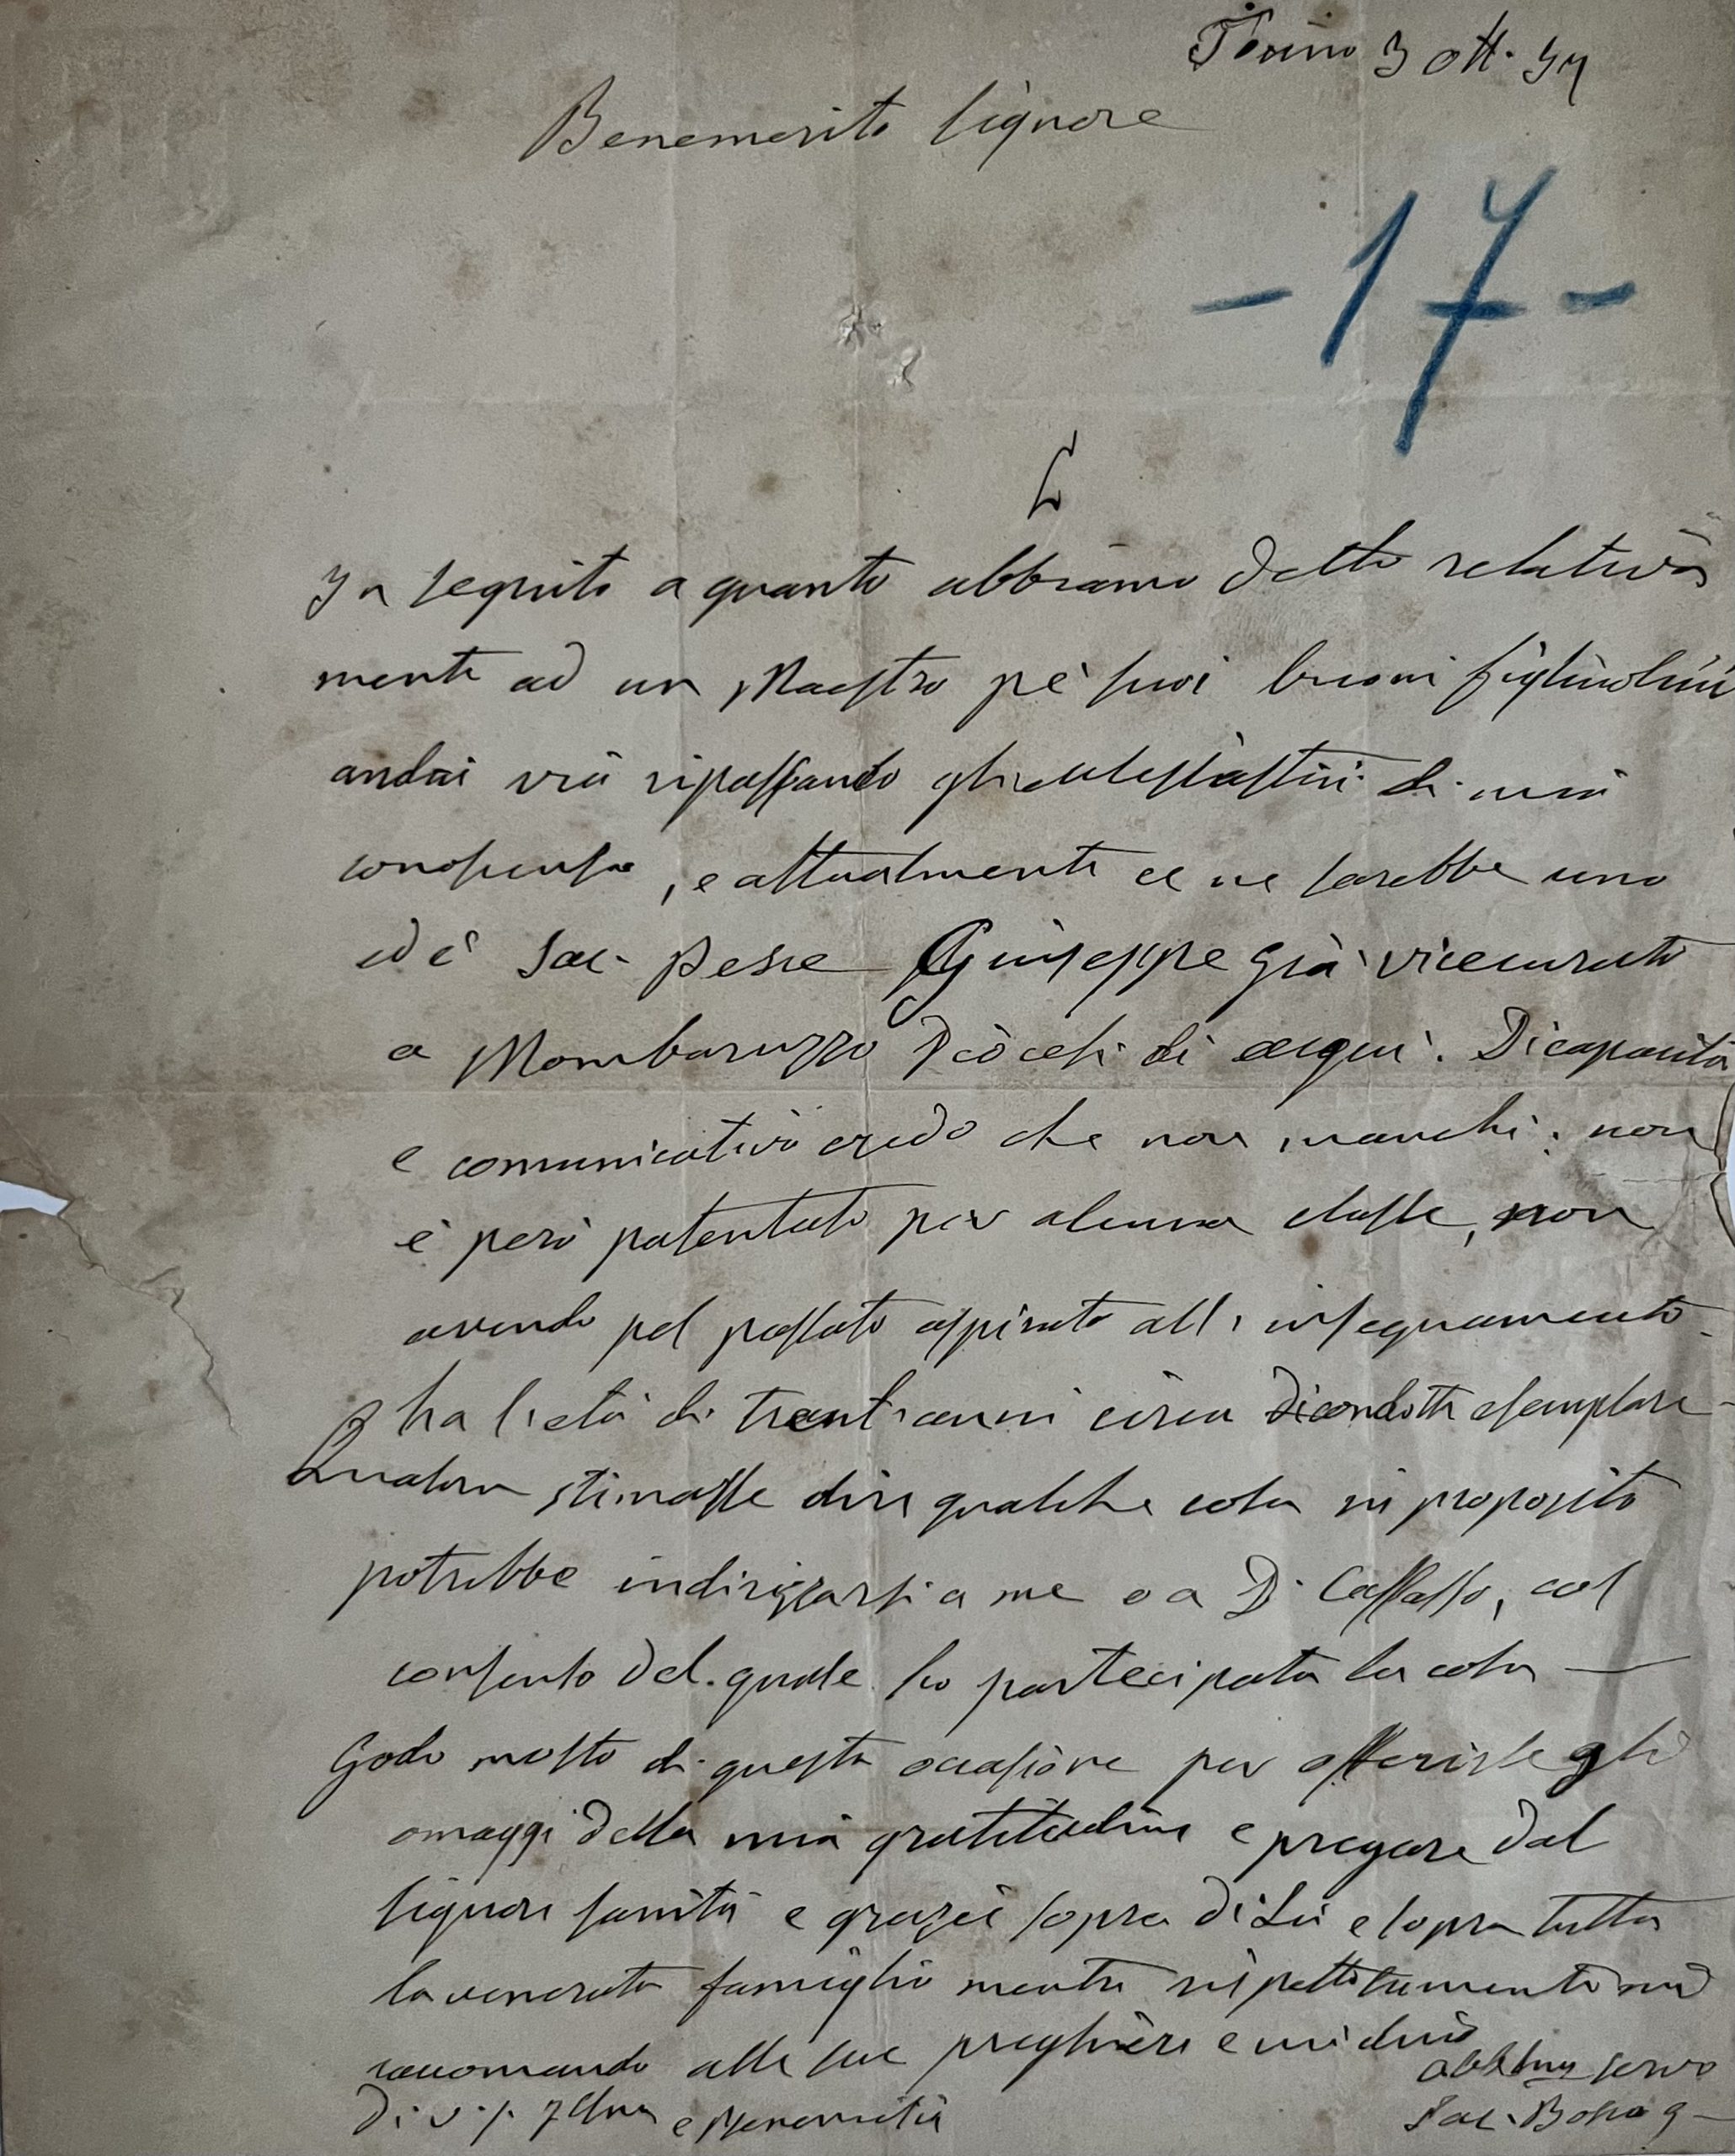 Torino 3 ott. 57
Benemerito Signore
-17-
In seguito a quanto abbiamo detto relativa
mente ad un Maestro pe' suoi buoni figliuolini
andai via ripassando gli ecclesiastici di mia
conoscenza, e attualmente ce ne sarebbe uno
ed è Sac. Pesce Giuseppe già vicecurato
a Mombaruzzo Diocesi di Acqui. Di capacità
e comunicativa credo che non manchi; non
è però patentato per alcuna classe, non
avendo pel passato aspirato all'insegnamento.
ha l'età di trent'anni circa di condotta esemplare-
Qualora stimasse dire qualche cosa in proposito
potrebbe indirizzarsi a me o a D. Caffasso, col
consenso del quale ho partecipata la cosa —
Godo molto di questa occasione per offerirle gli
omaggi della mia gratitudine e pregare dal
Signore sanità e grazie sopra di Lei e sopra tutta
la venerata famiglia mentre rispettosamente mi
raccomando alle sue preghiere e mi dico
Di V. S. Ill.ma e Benemerita
obbl.mo servo
Sac. Bosco G-